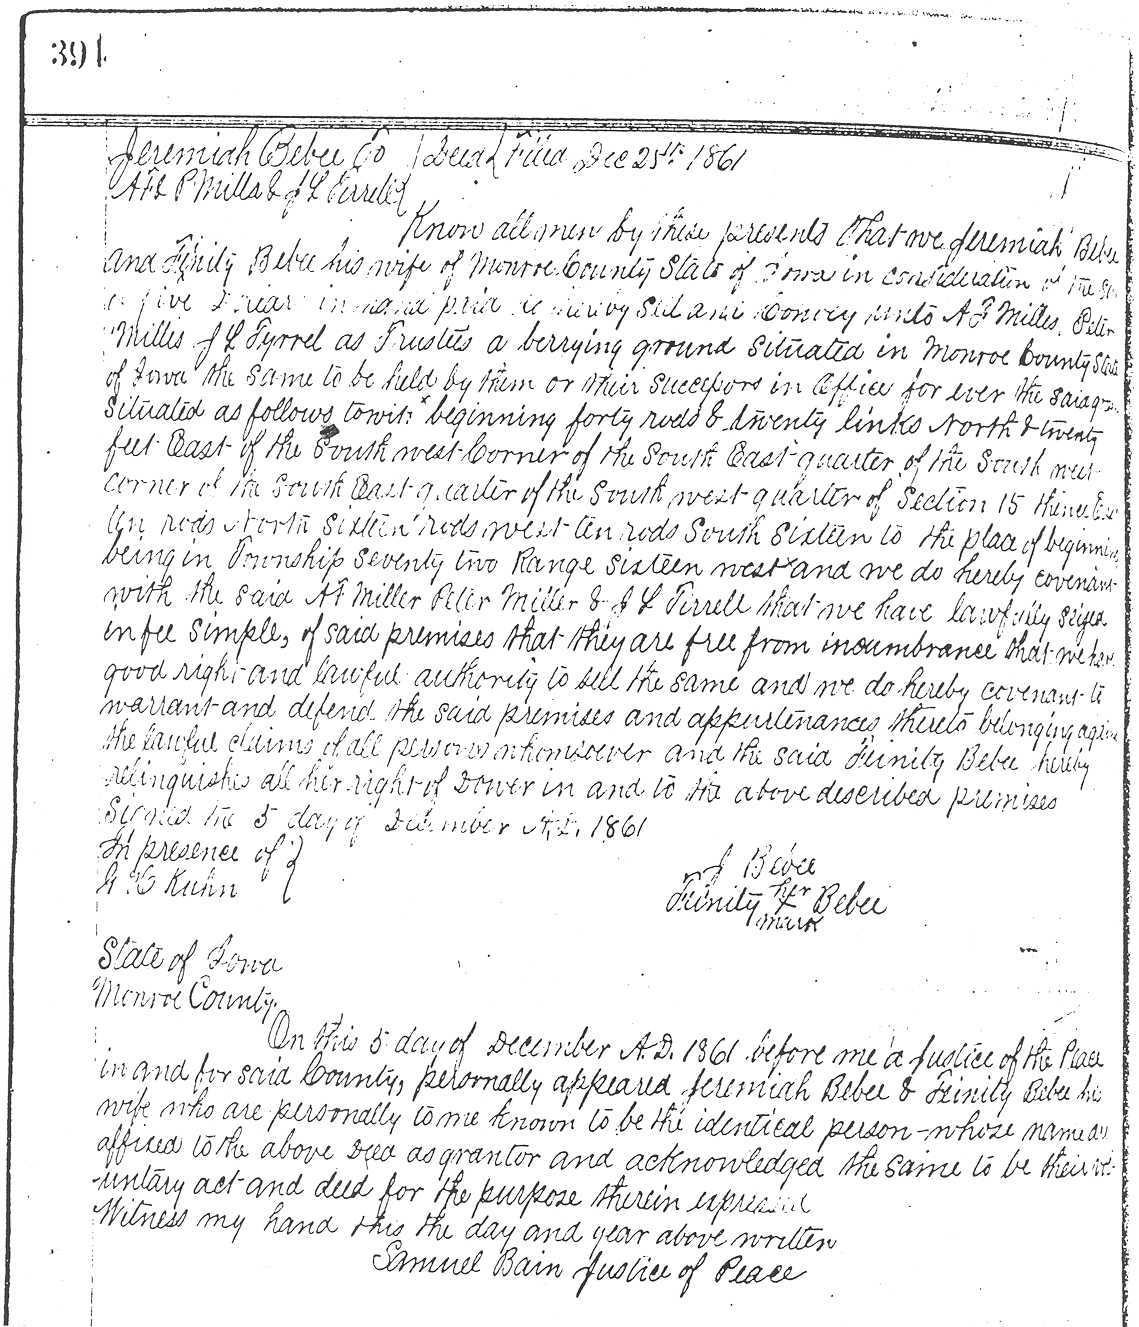 391
Jeremiah Bebee To } Deed { Filed Dec 25th 1861
A F & P Mills & J L Tirrell
Know all men by these presents That we Jeremiah Bebee
and Trinity Bebee his wife of Monroe County State of Iowa in consideration of the
five in hand paid do hereby sell and Convey unto A F Milles, Peter
Milles J L Tyrrel as Trustees a berrying ground situated in Monroe County State
of Iowa the same to be held by them or their successors in Office for ever the said
situated as follows towit: beginning forty rods & twenty links North & twenty
feet East of the South west Corner of the South East quarter of the South west
corner of the South East quarter of the South west quarter of Section 15 thence
ten rods North sixteen rods west ten rods South sixteen to the place of beginning
being in Township seventy two Range sixteen west and we do hereby covenant
with the said A F Miller Peter Miller & J L Tirrell that we have lawfully
in fee simple, of said premises that they are free from incumbrance that we have
good right and lawful authority to sell the same and we do hereby covenant to
warrant and defend the said premises and appurtenances thereto belonging
the lawful claims of all persons whomsoever and the said Trinity Bebee hereby
relinquishes all her right of Dower in and to the above described premises
Signed the 5 day of December A.D. 1861
In presence of }
Kuhn
J Bebee
Trinity her X mark Bebee
State of Iowa
Monroe County.
On this 5 day of December A.D. 1861 before me a Justice of the Peace
in and for said County, personally appeared Jeremiah Bebee & Trinity Bebee his
wife who are personally to me known to be the identical person whose name
affixed to the above Deed as grantor and acknowledged the same to be their vol-
-untary act and deed for the purpose therein expressed
Witness my hand this the day and year above written
Samuel Bain Justice of Peace